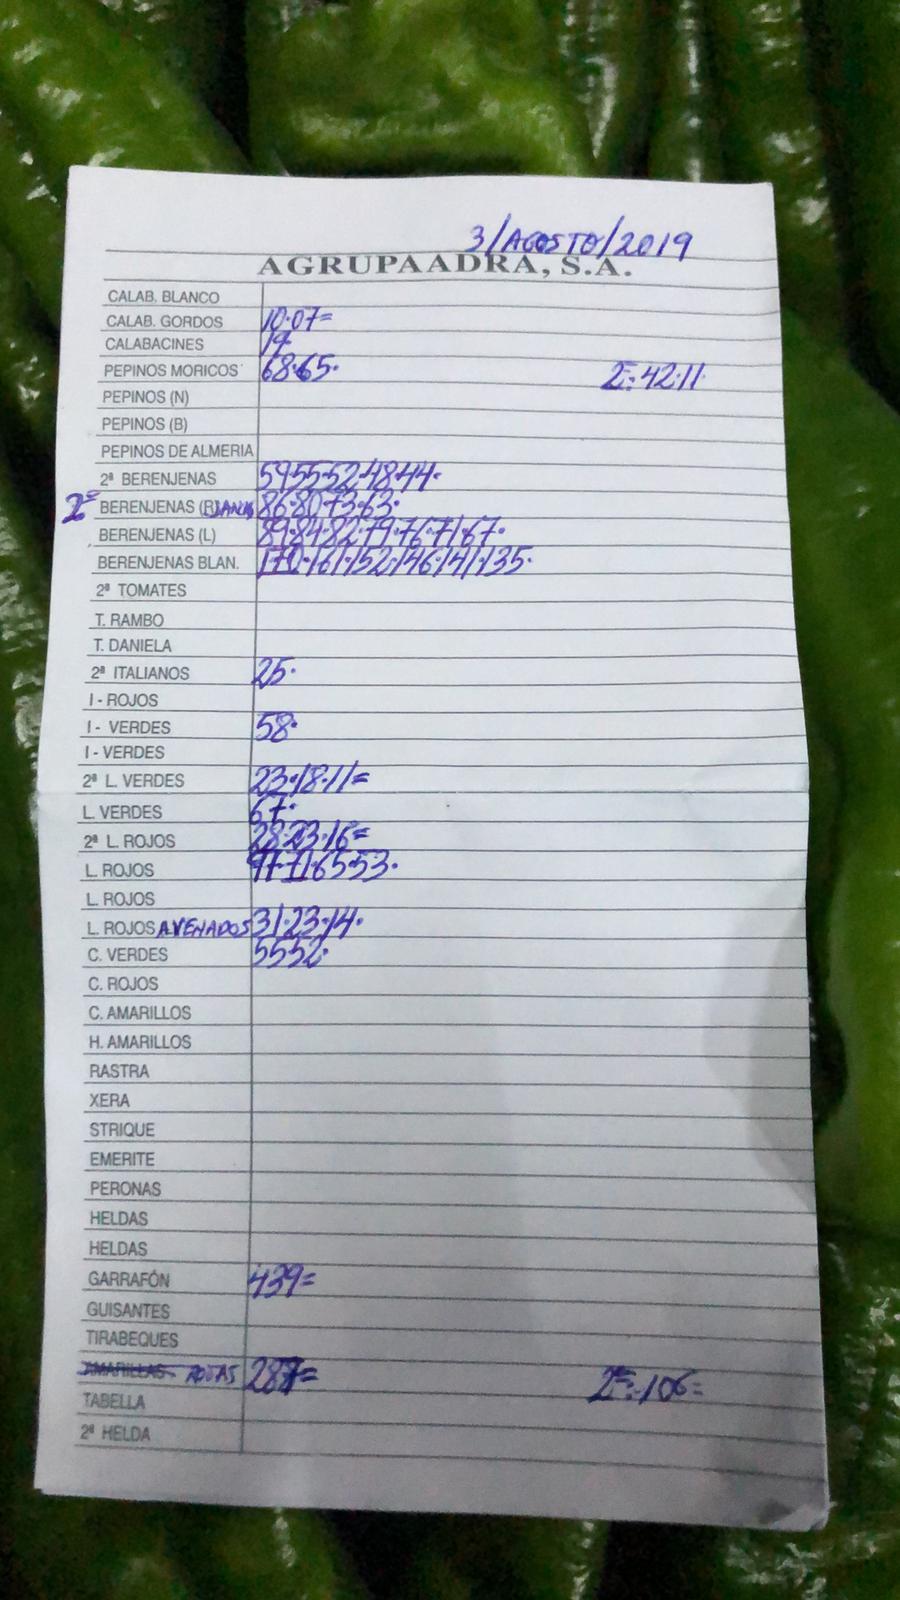 3/AGOSTO/2019
AGRUPAADRA, S.A.
CALAB. BLANCO
CALAB. GORDOS 10·07=
CALABACINES 19
PEPINOS MORICOS 68·65· 2ª: 42·11·
PEPINOS (N)
PEPINOS (B)
PEPINOS DE ALMERIA
2ª BERENJENAS 59·55·52·48·44·
2ª BERENJENAS 86·80·73·63·
BERENJENAS (L) 89·84·82·79·76·71·67·
BERENJENAS BLAN. 170·161·152·146·141·135·
2ª TOMATES
T. RAMBO
T. DANIELA
2ª ITALIANOS 25·
I - ROJOS
I - VERDES 58·
I - VERDES
2ª L. VERDES 23·18·11=
L. VERDES 67·
2ª L. ROJOS 28·23·16=
L. ROJOS 71·65·53·
L. ROJOS
L. ROJOS AVENADOS 31·23·14·
C. VERDES 55·52·
C. ROJOS
C. AMARILLOS
H. AMARILLOS
RASTRA
XERA
STRIQUE
EMERITE
PERONAS
HELDAS
HELDAS
GARRAFÓN 439=
GUISANTES
TIRABEQUES
AMARILLAS ROJAS 2ª: 106=
TABELLA
2ª HELDA